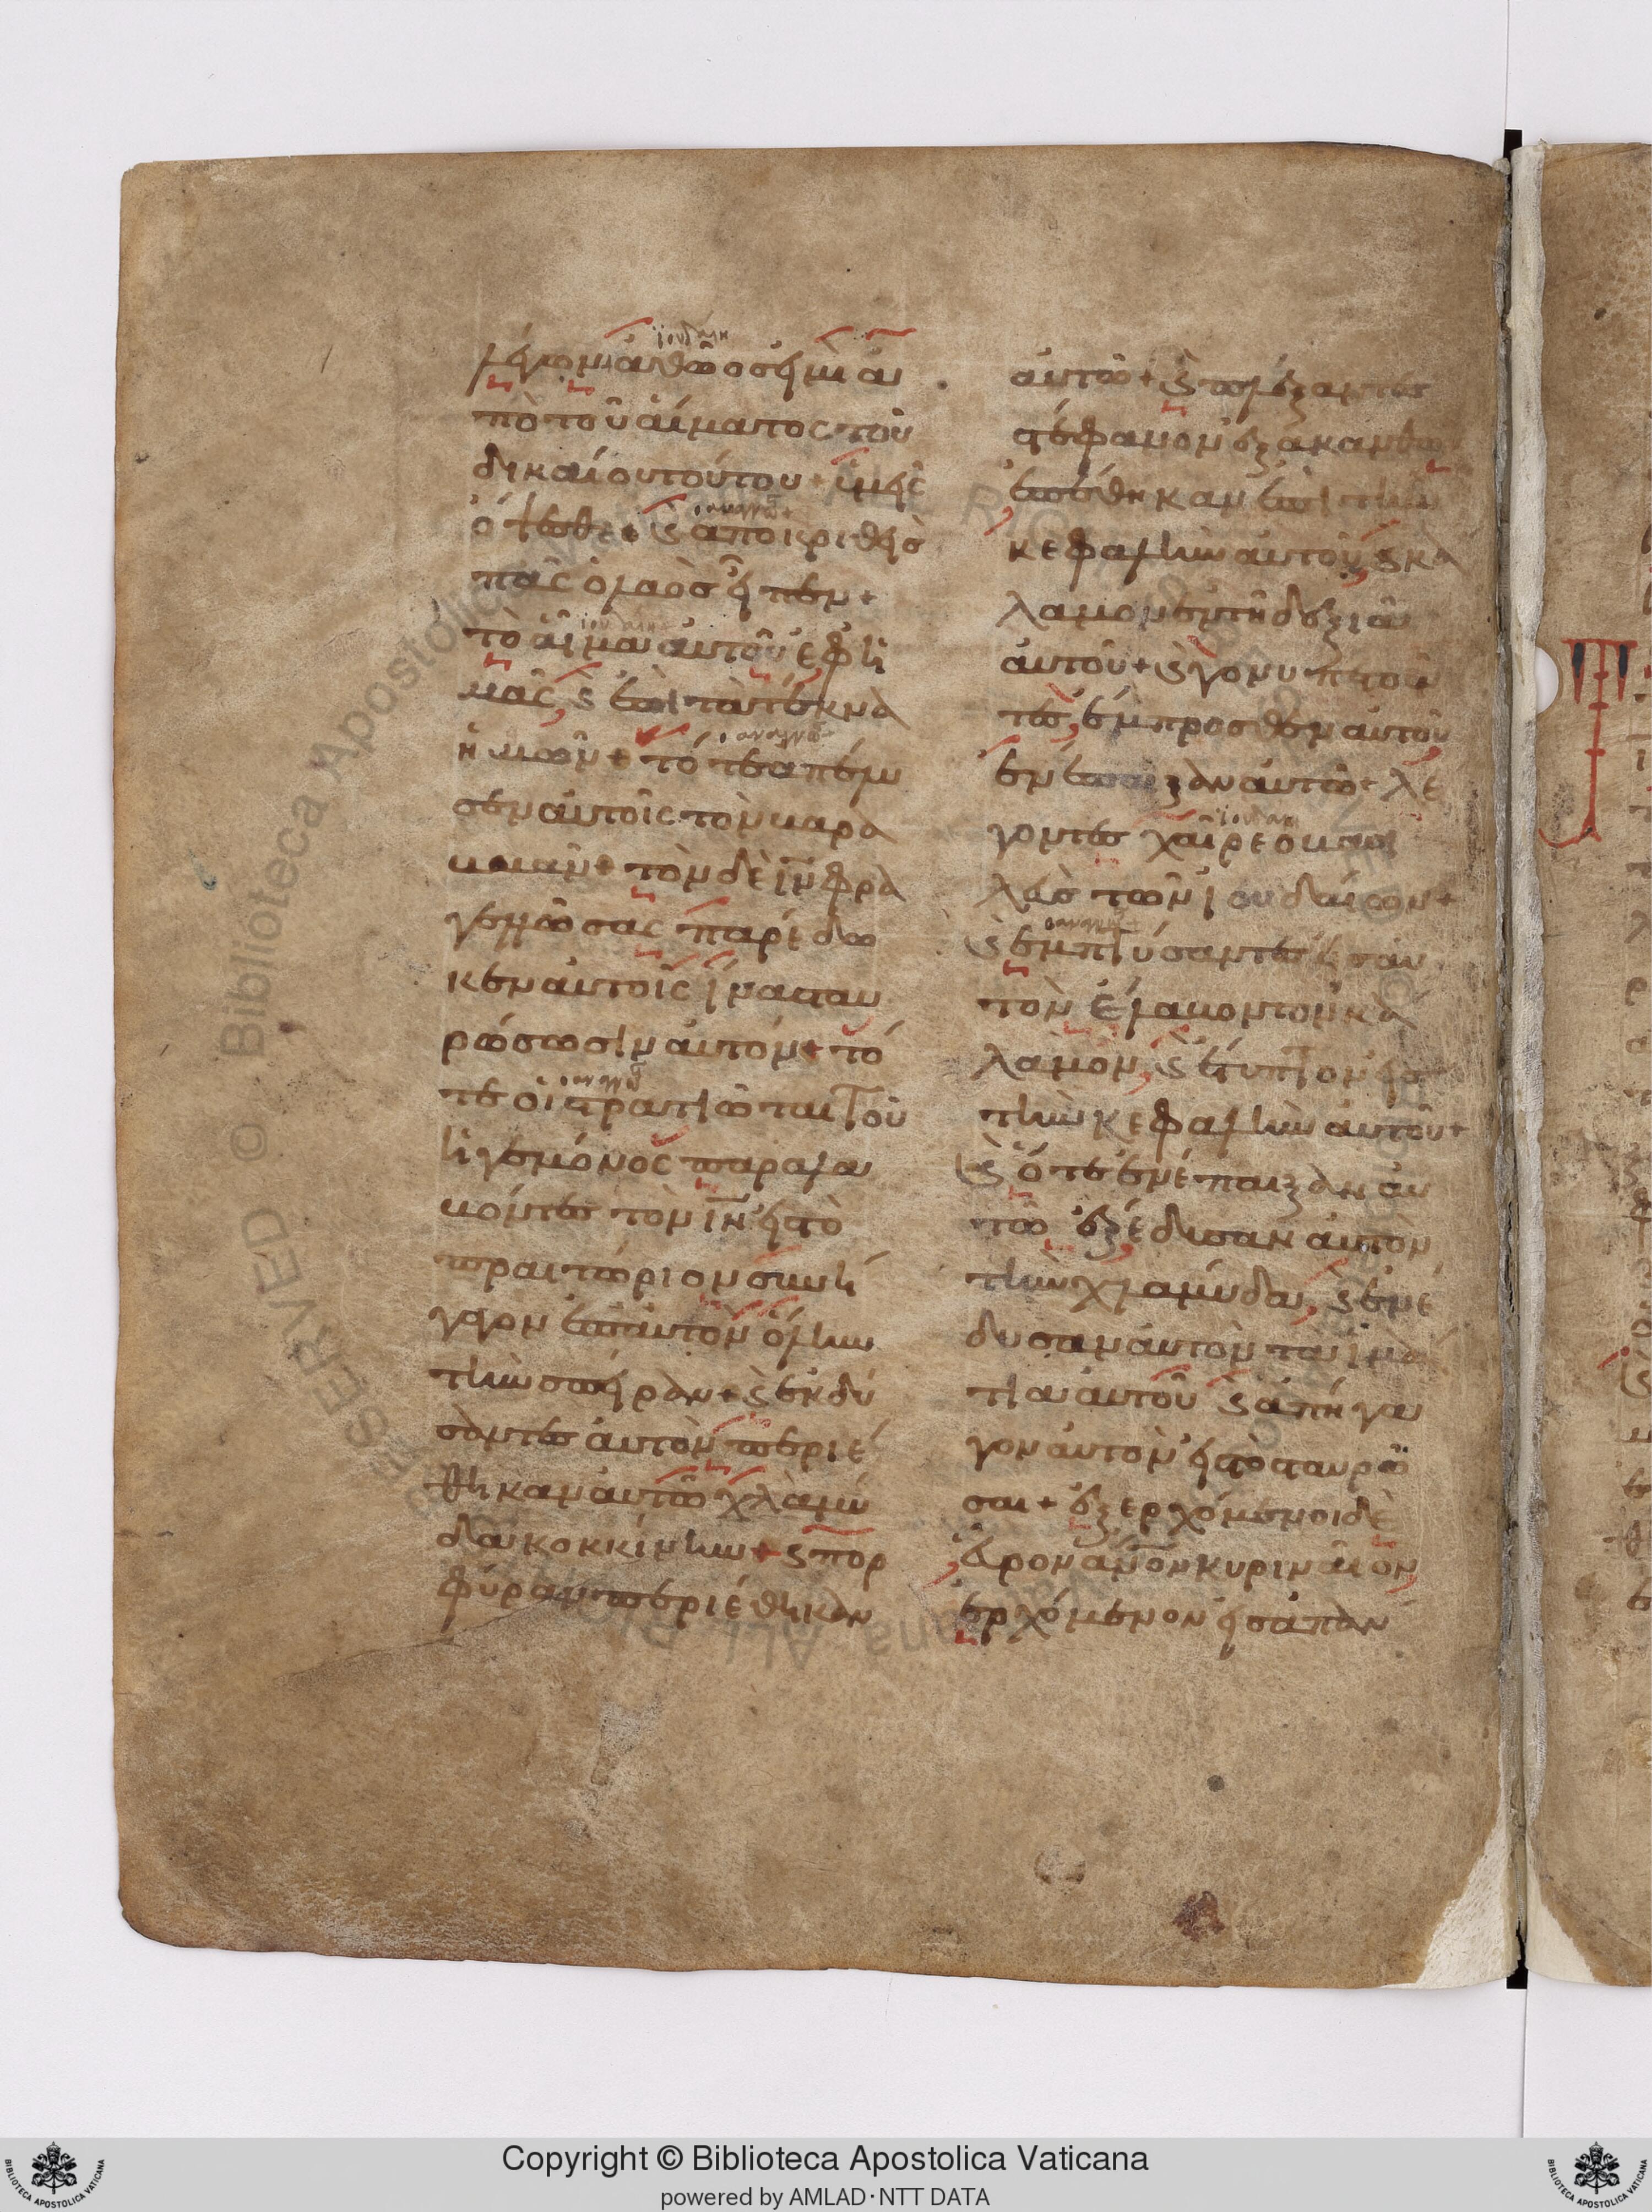 λέγων ἀθῶος εἰμὶ ἀ
πὸ τοῦ αἵματος τοῦ
δικαίου τούτου + ὑμεῖς
ὄψεσθε + ϛ ἀποκριθεὶς
πᾶς ὁ λαὸς εἶπεν +
τὸ αἷμα αὐτοῦ ἐφ ἡ
μᾶς, ϛ ἐπὶ τὰ τέκνα
ἡμῶν + τότε ἀπέλυ
σεν αὐτοῖς τὸν βαρα
βαν + τὸν δὲ ιν φρα
γελλώσας παρέδω
κεν αὐτοῖς ἵνα σταυ
ρώσωσιν αὐτόν + τό
τε οἱ στρατιῶται τοῦ
ἡγεμόνος παραλα
βόντες τὸν ιν εἰς τὸ
πραιτώριον συνή
γαγον ἐπ αὐτὸν ὅλην
τὴν σπεῖραν + ϛ ἐκδύ
σαντες αὐτὸν περιέ
θηκαν αὐτῶ χλαμύ
δα κοκκίνην + ϛ πορ
φύραν περιέθηκαν
αὐτῶ + ϛ πλέξαντες
στέφανον ἐξ ἀκανθῶ
ἐπέθηκαν ἐπὶ τὴν
κεφαλὴν αὐτοῦ, ϛ κα
λαμον ἐν τῆ δεξιᾶ
αὐτοῦ + ϛ γονυπετοῦ
τες, ἔμπροσθεν αὐτοῦ
ἐνέπαιζον αὐτῶ + λέ
γοντες χαῖρε ὁ βασι
λεὺς τῶν ἰουδαίων +
ϛ ἐμπτύσαντες εἰς αὐ
τὸν ἔλαβον τὸν κα
λαμον, ϛ ἔτυπτον εἰς
τὴν κεφαλὴν αὐτοῦ +
ϛ ὅτε ἐνέπαιξαν αὐ
τῶ ἐξέδυσαν αὐτὸν
τὴν χλαμύδα, ϛ ἐνέ
δυσαν αὐτὸν τὰ ἱμά
τια αὐτοῦ ϛ ἀπήγα
γον αὐτὸν εἰς τὸ σταυρῶ
σαι + ἐξερχόμενοι δὲ
εὗρον ἄνον κυριναῖον,
ἐρχόμενον εἰς ἀπαν
Copyright © Biblioteca Apostolica Vaticana
powered by AMLAD·NTT DATA